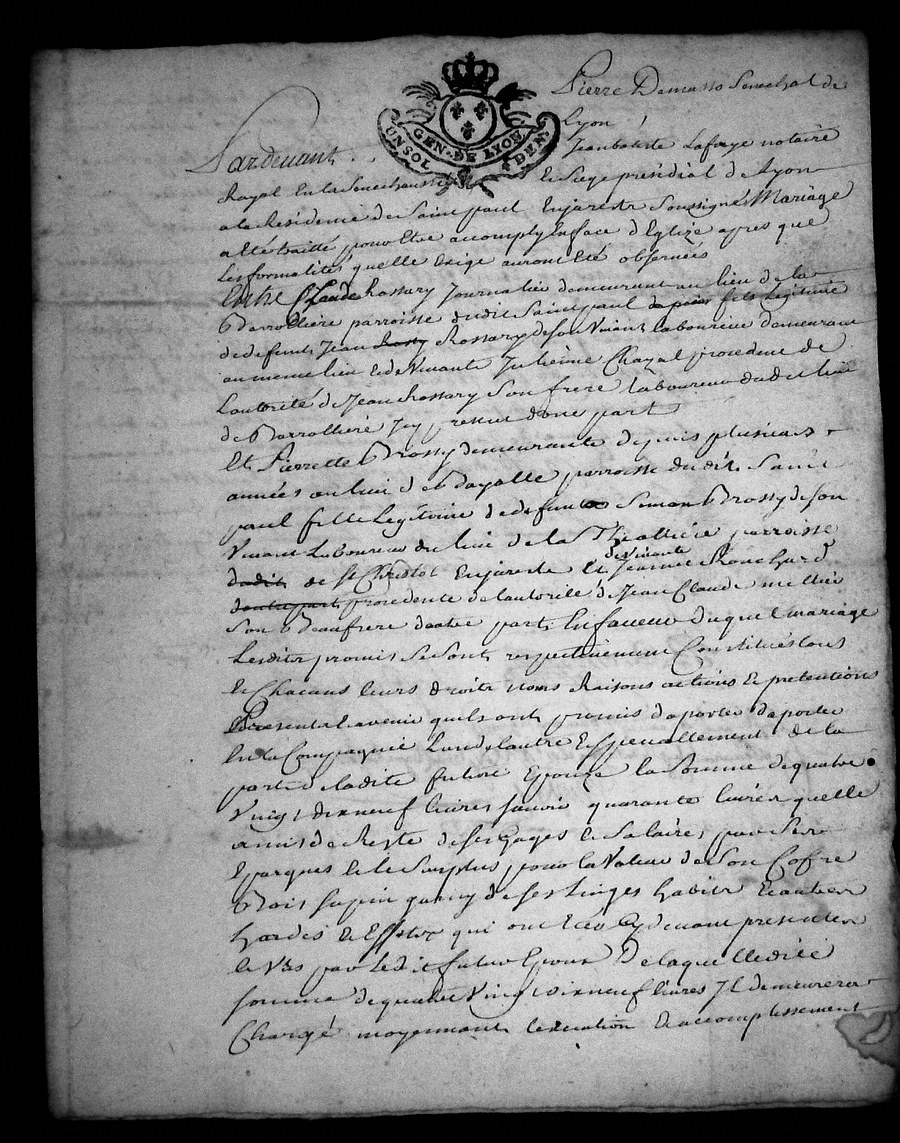 Pierre Demasso Senechal de
Lyon
GEN. DE LYON
UN SOL DEN
Pardevant Jeanbatiste Lafaye notaire
Royal En la Senechaussée & Siege presidial de Lyon
a la Residence de Saint paul Enjarestz Soussigné Mariage
a Eté traitté pour Etre accomply Enface d'Eglize apres que
Les formalités quelle Exige auront Eté observées
Entre Claude Rossary Journalier demeurant au lieu de la
Barrolliere parroisse dudit Saint paul fils Legitime
de defunt Jean Rossary de son Vivant laboureur demeurant
au meme lieu & de Vivante Julienne Chazal procedant de
L'autorité de Jean Rossary Son frere laboureur dudit lieu
de Barrolliere Jcy present d'une part
Et Pierrette Brossy demeurante depuis plusieurs
années au lieu de parroisse dudit Saint
paul fille Legitime de defunt Simon Brossy de son
Vivant Laboureur du lieu de la Thiolliere parroisse
dudit de St Christot Enjarestz & de Vivante Jeanne
procedente de l'autorité de Jean Claude
Son Beaufrere d'autre part, En faveur duquel mariage
Lesdits promis Se sont respectivement Constitués tous
& Chacuns leurs droits noms Raisons actions & pretentions
Presents & avenir quils ont promis d'aporter
En la Compagnie Lun de lautre & Specialement de la
part de ladite future Epouze la Somme de quatre
Vingt dixneuf livres savoir quarante livres quelle
a mis de Reste de ses Gages & Salaires, par Ses
Eparques & le Surplus pour la Valeur de Son Coffre
Bois sapin garny de ses Linges habits & autres
hardes & Effets qui ont Eté Cy devant presentés
& Vus par Ledit futur Epoux De laquelle dite
somme de quatre Vingt dixneuf livres Jl demeurera
Chargé moyennant l'execution & accomplissement